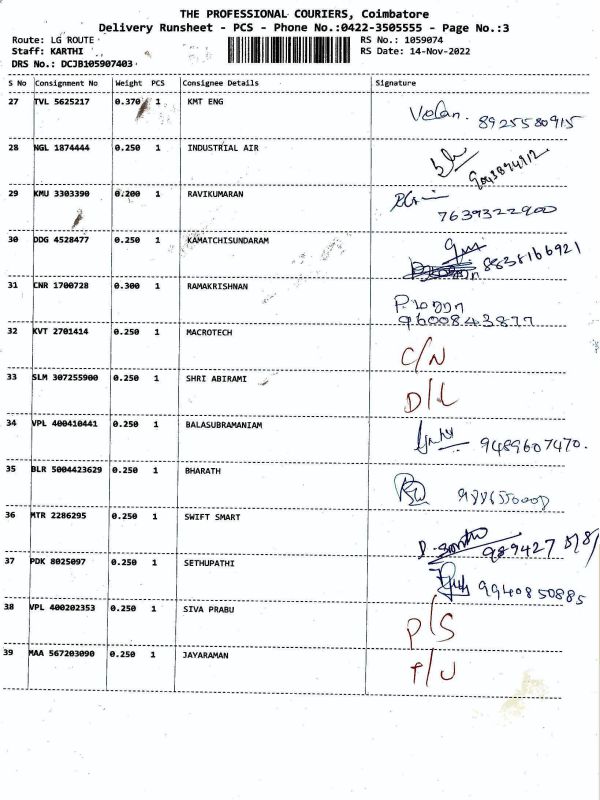 THE PROFESSIONAL COURIERS, Coimbatore
Delivery Runsheet - PCS - Phone No.:0422-3505555 - Page No.:3
Route: LG ROUTE RS No.: 1059074
Staff: KARTHI RS Date: 14-Nov-2022
DRS No.: DCJB105907403
S No Consignment No Weight PCS Consignee Details Signature
27 TVL 5625217 0.370 1 KMT ENG Velan. 8925580915
28 NGL 1874444 0.250 1 INDUSTRIAL AIR
29 KMU 3303390 0.200 1 RAVIKUMARAN 7639322900
30 DDG 4528477 0.250 1 KAMATCHISUNDARAM 8838166921
31 CNR 1700728 0.300 1 RAMAKRISHNAN
9600843877
32 KVT 2701414 0.250 1 MACROTECH C/N
33 SLM 307255900 0.250 1 SHRI ABIRAMI D/L
34 VPL 400410441 0.250 1 BALASUBRAMANIAM 9489607470.
35 BLR 5004423629 0.250 1 BHARATH
36 MTR 2286295 0.250 1 SWIFT SMART
37 PDK 8025097 0.250 1 SETHUPATHI 9940850885
38 VPL 400202353 0.250 1 SIVA PRABU P/S
39 MAA 567203090 0.250 1 JAYARAMAN